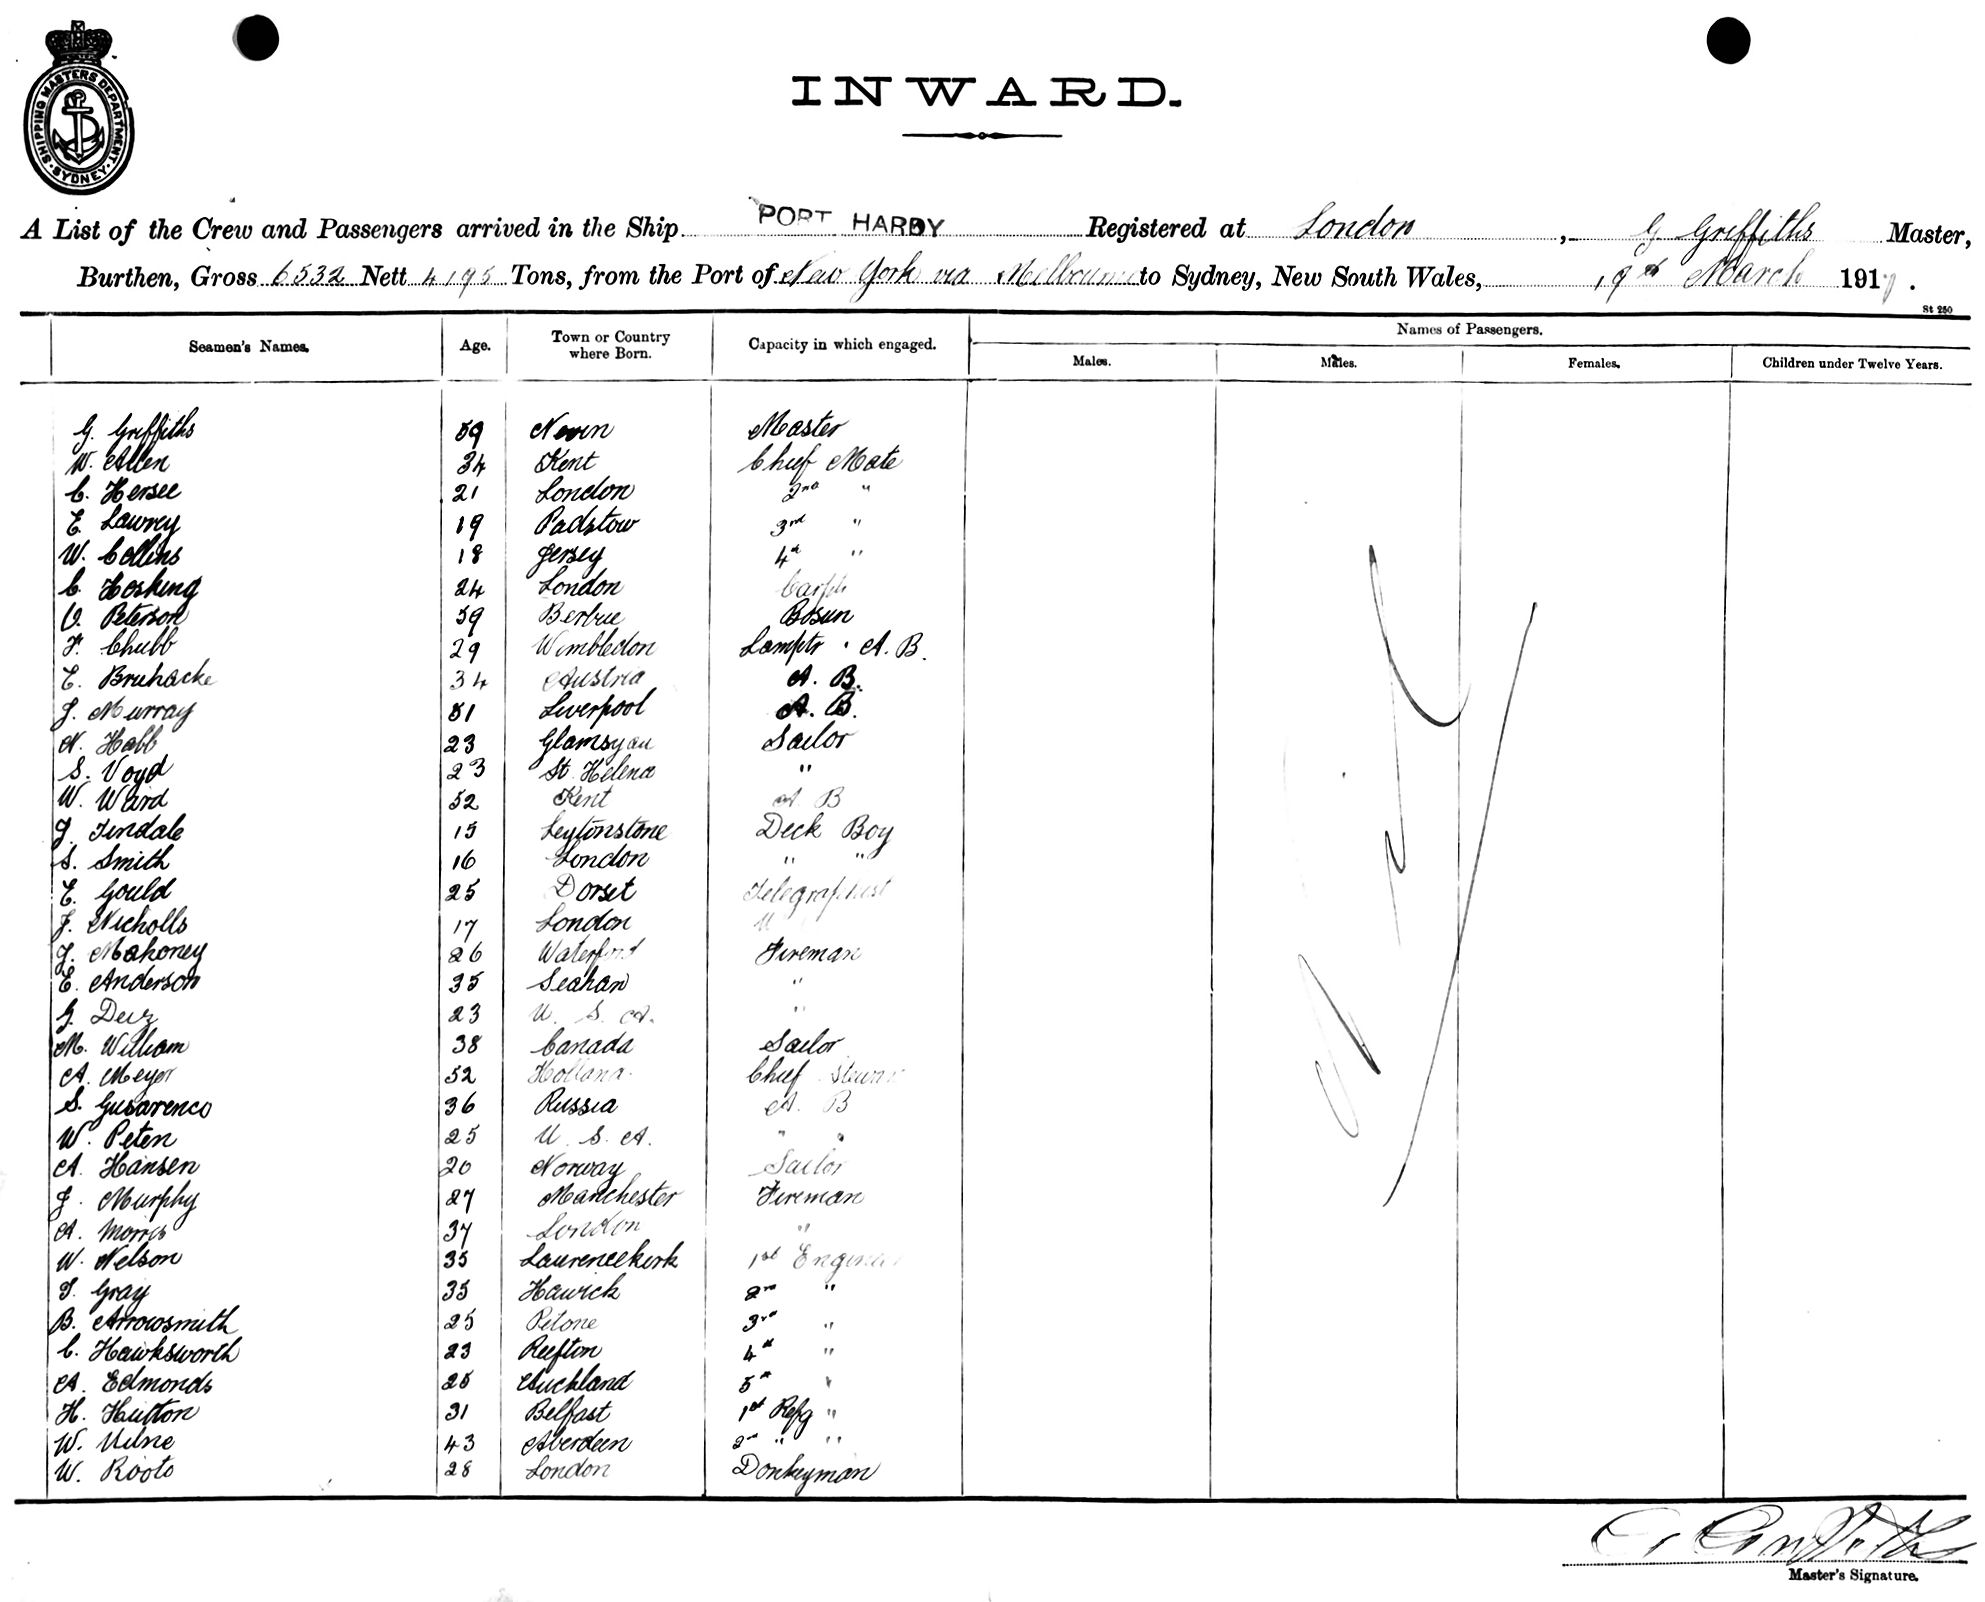 SHIPPING MASTERS DEPARTMENT
SYDNEY
INWARD.
A List of the Crew and Passengers arrived in the Ship PORT HARDY Registered at London, G Griffiths Master,
Burthen, Gross 6532 Nett 4195 Tons, from the Port of New York via Melbourne to Sydney, New South Wales, 19th March 191
St 250
Seamen's Names. Age. Town or Country where Born. Capacity in which engaged. Names of Passengers.
Males. Males. Females. Children under Twelve Years.
G. Griffiths 59 Nevin Master
W. Allen 34 Kent Chief Mate
C. Hersee 21 London 2nd "
E. Lawrey 19 Padstow 3rd "
W. Collins 18 Jersey 4th "
C. Hosking 24 London Carptr
O. Peterson 59 Bosun
F. Chubb 29 Wimbledon Lamptr . A. B.
E. Bruhacke 34 Austria A. B.
J. Murray 51 Liverpool A. B.
N. Habb 23 Sailor
S. Voyd 23 St Helena "
W. Ward 52 Kent A. B
J. Tindale 15 Leytonstone Deck Boy
S. Smith 16 London " "
E. Gould 25 Dorset Telegraphist
J. Nicholls 17 London
J. Mahoney 26 Waterford Fireman
E. Anderson 35 Seahan "
G. 23 U. S. A. "
M. William 38 Canada Sailor
A. Meyer 52 Holland Chief Steward
S. Gusarenco 36 Russia A. B
W. Peten 25 U. S. A. " "
A. Hansen 20 Norway Sailor
J. Murphy 27 Manchester Fireman
A. Morris 37 London "
W. Nelson 35 Laurencekirk 1st Engineer
T. Gray 35 Hawick 2nd "
B. Arrowsmith 25 Petone 3rd "
C. Hawksworth 23 Reefton 4th "
A. Edmonds 25 Auckland 5th "
H. Hutton 31 Belfast 1st Refg "
W. Milne 43 Aberdeen 2nd " "
W. Roots 28 London Donkeyman
G Griffiths
Master's Signature.